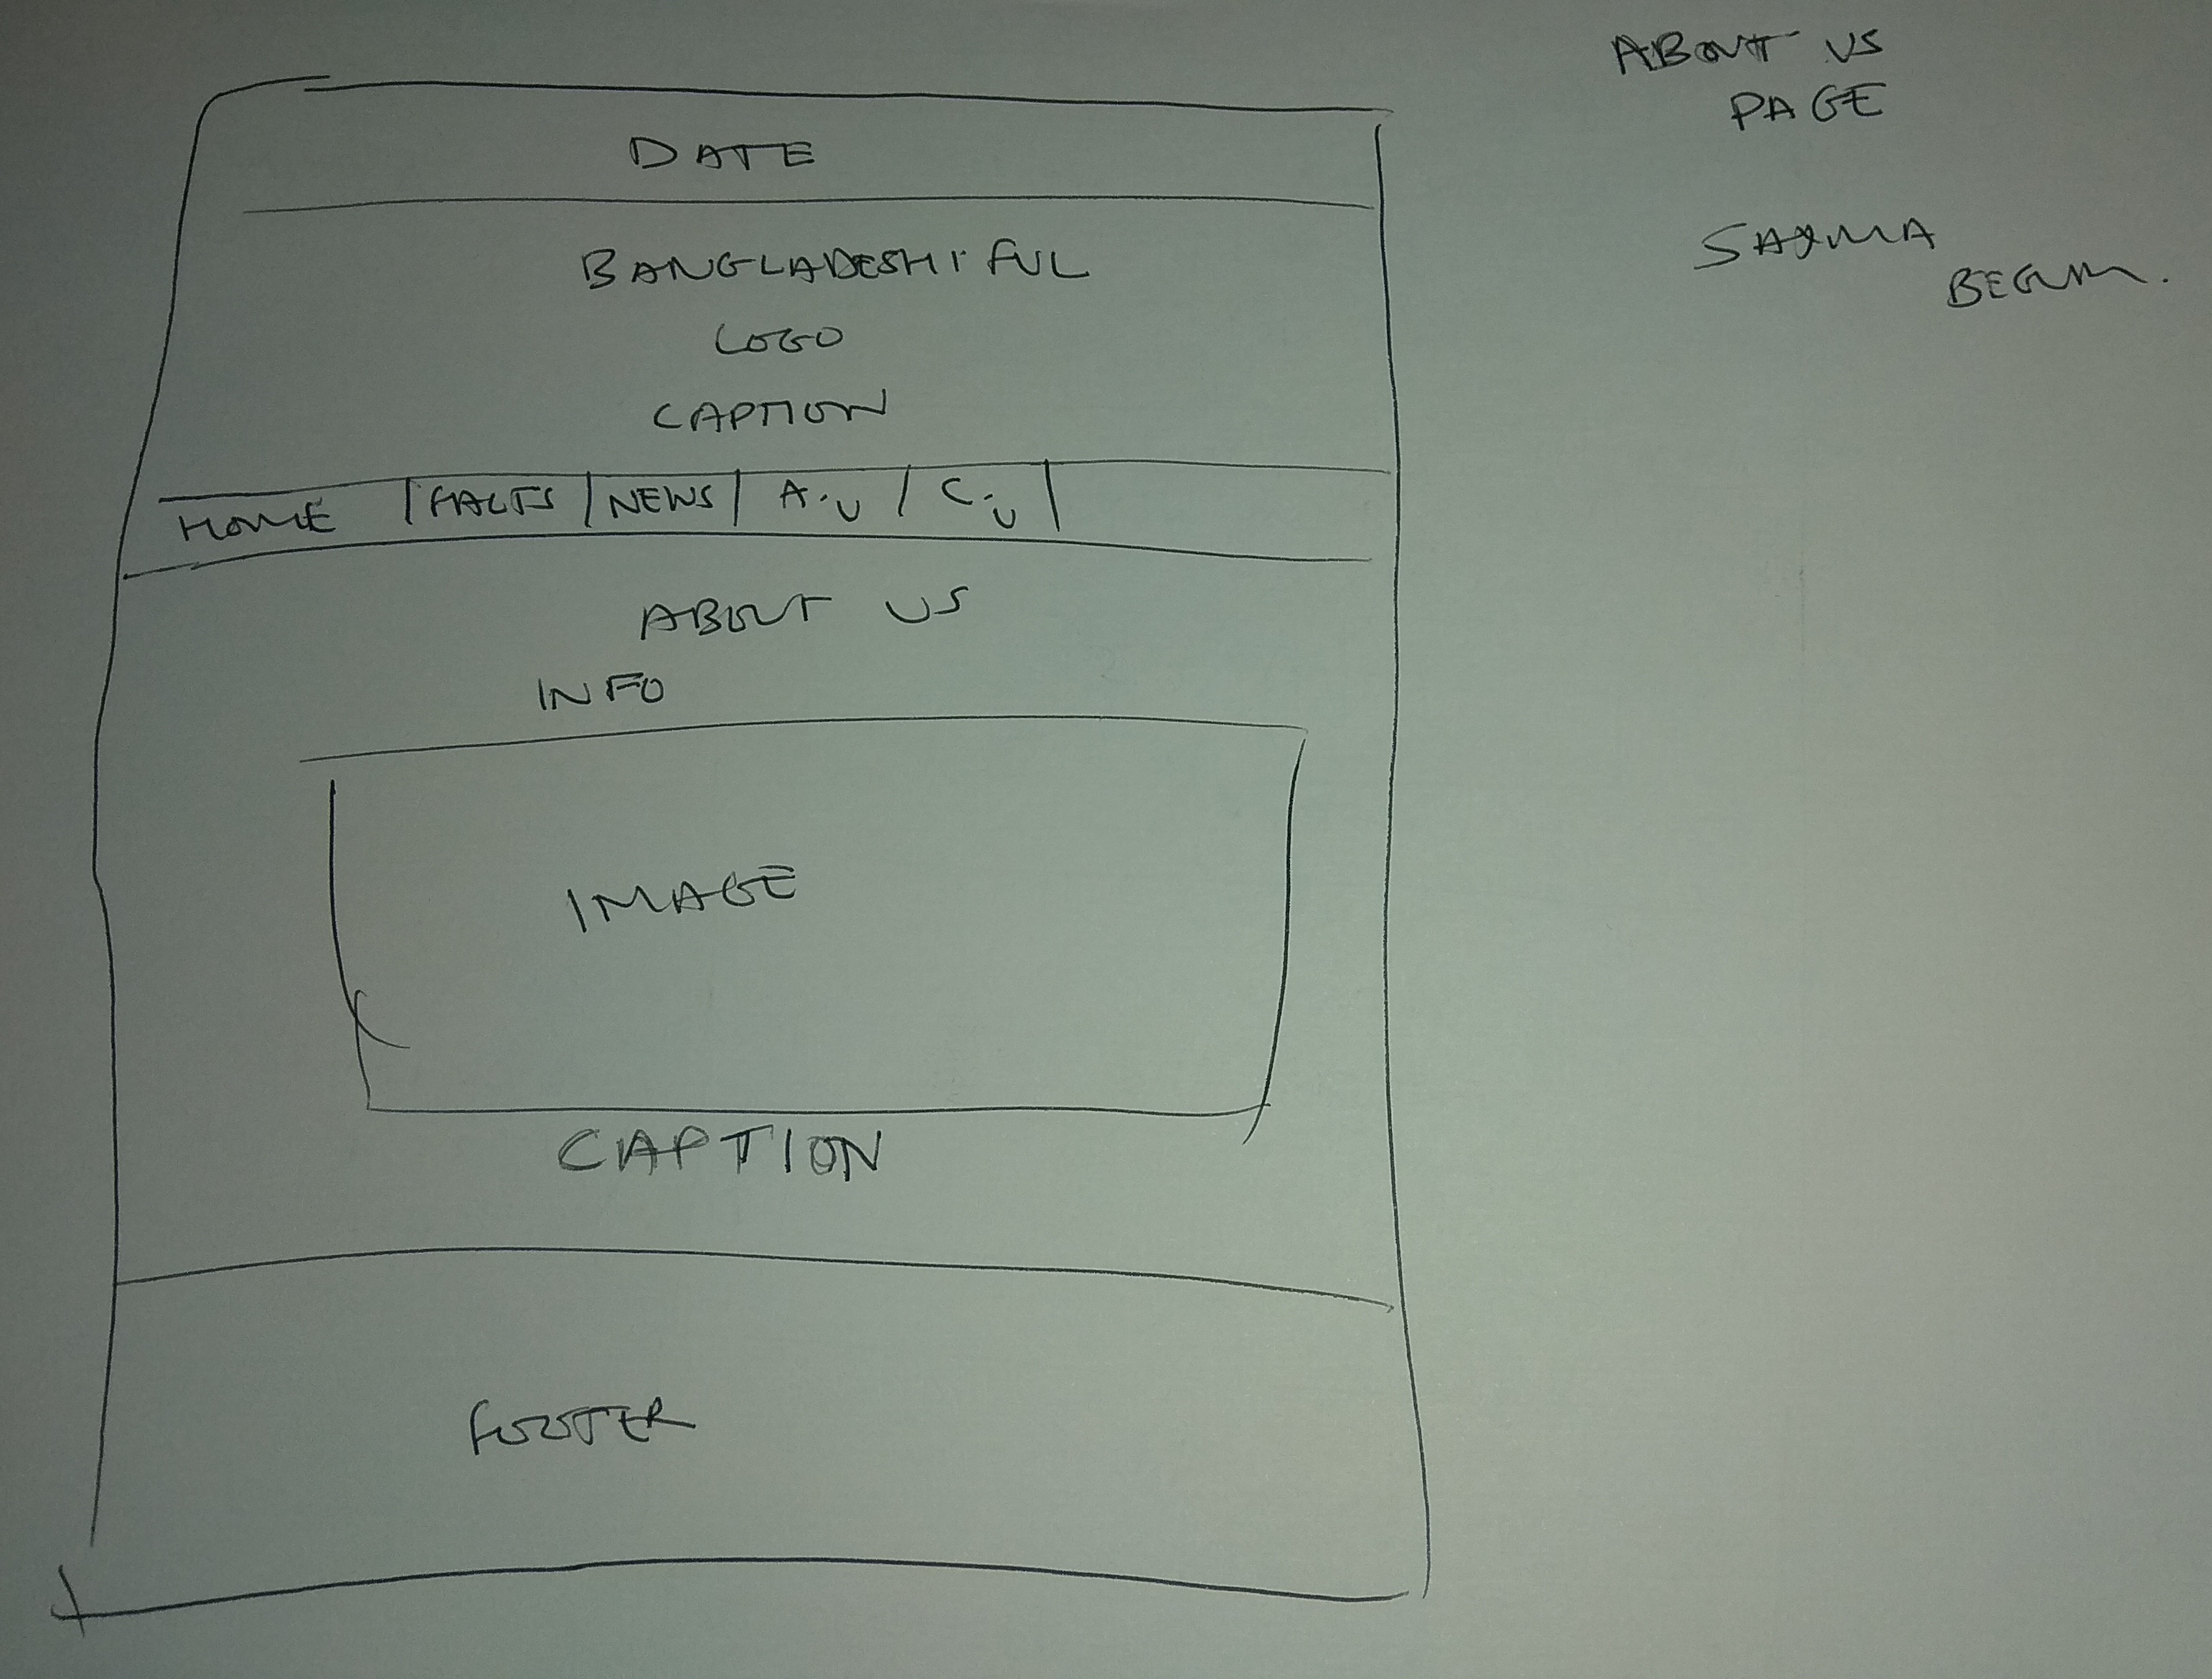 ABOUT US
PAGE
SAYMA
BEGUM.
DATE
BANGLADESHIFUL
LOGO
CAPTION
HOME | FACTS | NEWS | A.U | C.U |
ABOUT US
INFO
IMAGE
CAPTION
FOOTER